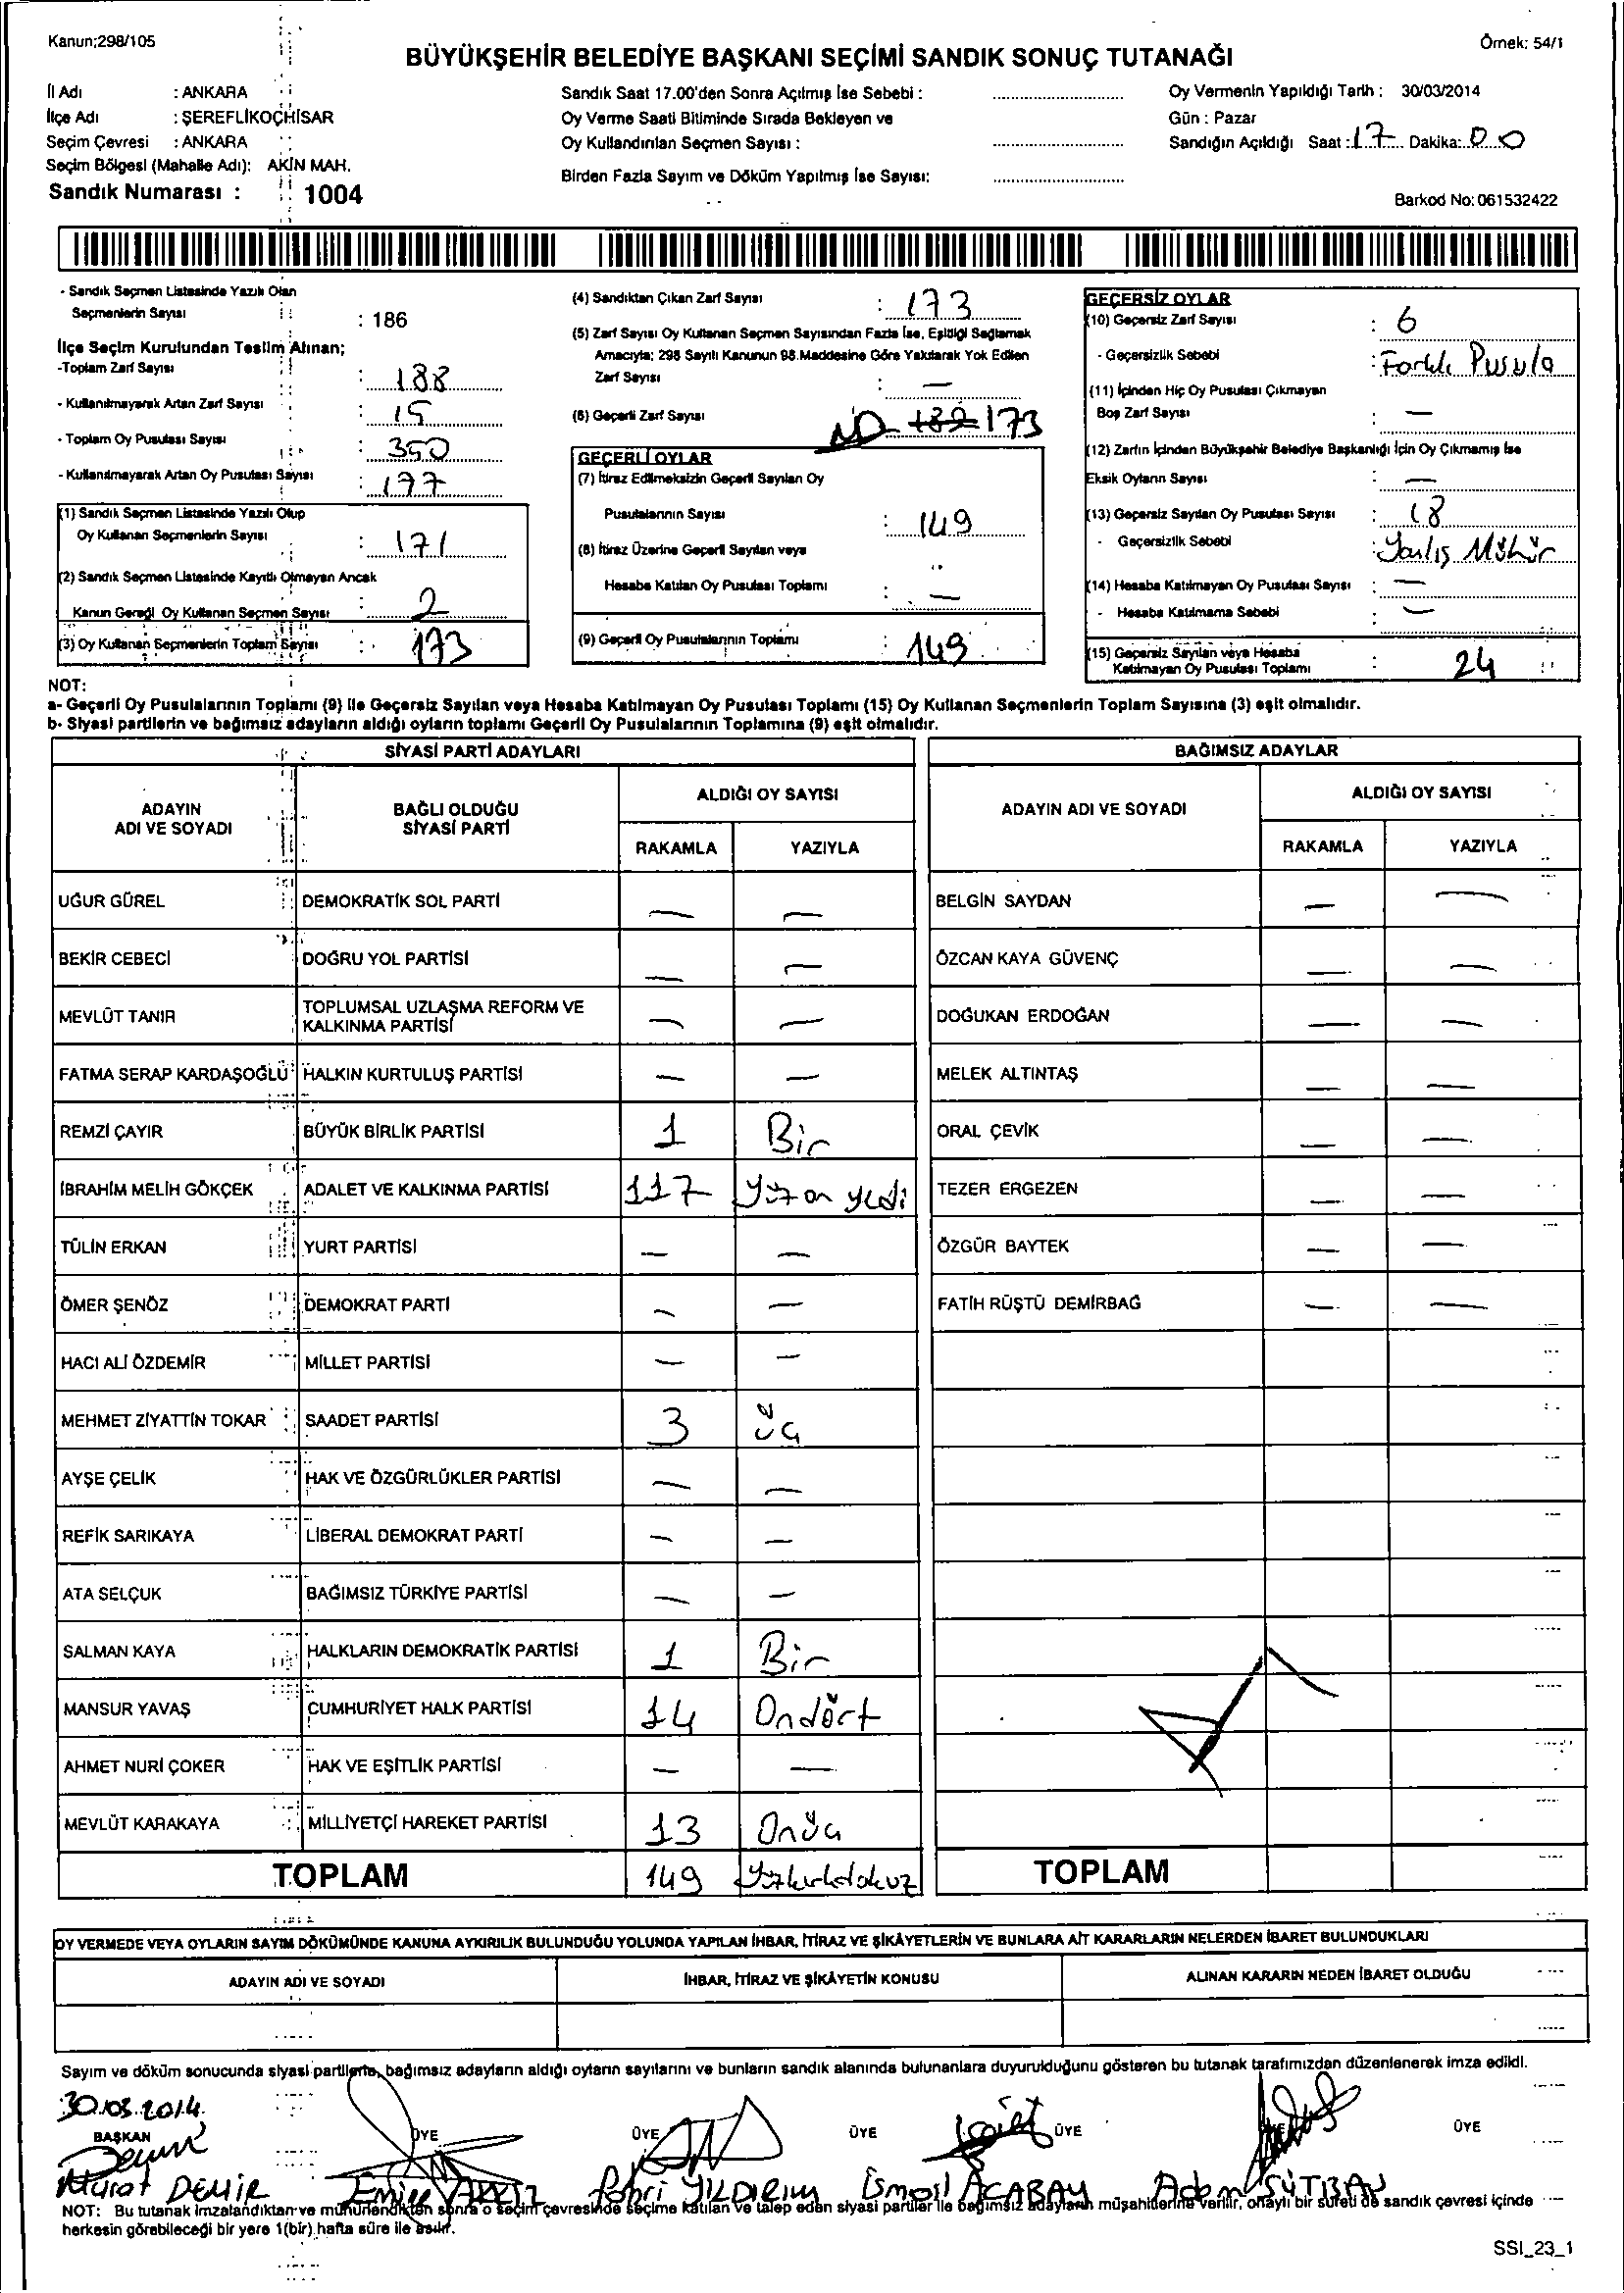 Kanun;298/105
Örnek: 54/1
BÜYÜKŞEHİR BELEDİYE BAŞKANI SEÇİMİ SANDIK SONUÇ TUTANAĞI
İl Adı : ANKARA
İlçe Adı : ŞEREFLİKOÇHİSAR
Seçim Çevresi : ANKARA
Seçim Bölgesi (Mahalle Adı): AKIN MAH.
Sandık Numarası : 1004
Sandık Saat 17.00'den Sonra Açılmış İse Sebebi :
Oy Verme Saati Bitiminde Sırada Bekleyen ve
Oy Kullandırılan Seçmen Sayısı :
Birden Fazla Sayım ve Döküm Yapılmış İse Sayısı:
Oy Vermenin Yapıldığı Tarih : 30/03/2014
Gün : Pazar
Sandığın Açıldığı Saat : 17 Dakika: 00
Barkod No: 061532422
- Sandık Seçmen Listesinde Yazılı Olan
Seçmenlerin Sayısı : 186
İlçe Seçim Kurulundan Teslim Alınan;
-Toplam Zarf Sayısı : 188
- Kullanılmayarak Artan Zarf Sayısı : 15
- Toplam Oy Pusulası Sayısı : 350
- Kullanılmayarak Artan Oy Pusulası Sayısı : 177
(1) Sandık Seçmen Listesinde Yazılı Olup
Oy Kullanan Seçmenlerin Sayısı : 171
(2) Sandık Seçmen Listesinde Kayıtlı Olmayan Ancak
Kanun Gereği Oy Kullanan Seçmen Sayısı : 2
(3) Oy Kullanan Seçmenlerin Toplam Sayısı : 173
(4) Sandıktan Çıkan Zarf Sayısı : 173
(5) Zarf Sayısı Oy Kullanan Seçmen Sayısından Fazla İse, Eşitliği Sağlamak
Amacıyla; 298 Sayılı Kanunun 98.Maddesine Göre Yakılarak Yok Edilen
Zarf Sayısı : —
(6) Geçerli Zarf Sayısı 173
GEÇERLİ OYLAR
(7) İtiraz Edilmeksizin Geçerli Sayılan Oy
Pusulalarının Sayısı : 149
(8) İtiraz Üzerine Geçerli Sayılan veya
Hesaba Katılan Oy Pusulası Toplamı : —
(9) Geçerli Oy Pusulalarının Toplamı : 149
GEÇERSİZ OYLAR
(10) Geçersiz Zarf Sayısı : 6
- Geçersizlik Sebebi : Farklı Pusula
(11) İçinden Hiç Oy Pusulası Çıkmayan
Boş Zarf Sayısı : —
(12) Zarfın İçinden Büyükşehir Belediye Başkanlığı İçin Oy Çıkmamış İse
Eksik Oyların Sayısı : —
(13) Geçersiz Sayılan Oy Pusulası Sayısı : 18
- Geçersizlik Sebebi : Yanlış Mühür
(14) Hesaba Katılmayan Oy Pusulası Sayısı : —
- Hesaba Katılmama Sebebi : —
(15) Geçersiz Sayılan veya Hesaba
Katılmayan Oy Pusulası Toplamı : 24
NOT:
a- Geçerli Oy Pusulalarının Toplamı (9) ile Geçersiz Sayılan veya Hesaba Katılmayan Oy Pusulası Toplamı (15) Oy Kullanan Seçmenlerin Toplam Sayısına (3) eşit olmalıdır.
b- Siyasi partilerin ve bağımsız adayların aldığı oyların toplamı Geçerli Oy Pusulalarının Toplamına (9) eşit olmalıdır.
SİYASİ PARTİ ADAYLARI
ADAYIN ADI VE SOYADI
BAĞLI OLDUĞU SİYASİ PARTİ
ALDIĞI OY SAYISI
RAKAMLA YAZIYLA
UĞUR GÜREL DEMOKRATİK SOL PARTİ — —
BEKİR CEBECİ DOĞRU YOL PARTİSİ — —
MEVLÜT TANIR TOPLUMSAL UZLAŞMA REFORM VE KALKINMA PARTİSİ — —
FATMA SERAP KARDAŞOĞLU HALKIN KURTULUŞ PARTİSİ — —
REMZİ ÇAYIR BÜYÜK BİRLİK PARTİSİ 1 Bir
İBRAHİM MELİH GÖKÇEK ADALET VE KALKINMA PARTİSİ 117 Yüz on yedi
TÜLİN ERKAN YURT PARTİSİ — —
ÖMER ŞENÖZ DEMOKRAT PARTİ — —
HACI ALİ ÖZDEMİR MİLLET PARTİSİ — —
MEHMET ZİYATTİN TOKAR SAADET PARTİSİ 3 üç
AYŞE ÇELİK HAK VE ÖZGÜRLÜKLER PARTİSİ — —
REFİK SARIKAYA LİBERAL DEMOKRAT PARTİ — —
ATA SELÇUK BAĞIMSIZ TÜRKİYE PARTİSİ — —
SALMAN KAYA HALKLARIN DEMOKRATİK PARTİSİ 1 Bir
MANSUR YAVAŞ CUMHURİYET HALK PARTİSİ 14 Ondört
AHMET NURİ ÇOKER HAK VE EŞİTLİK PARTİSİ — —
MEVLÜT KARAKAYA MİLLİYETÇİ HAREKET PARTİSİ 13 Onüç
TOPLAM 149 Yüzkırkdokuz
BAĞIMSIZ ADAYLAR
ADAYIN ADI VE SOYADI
ALDIĞI OY SAYISI
RAKAMLA YAZIYLA
BELGİN SAYDAN — —
ÖZCAN KAYA GÜVENÇ — —
DOĞUKAN ERDOĞAN — —
MELEK ALTINTAŞ — —
ORAL ÇEVİK — —
TEZER ERGEZEN — —
ÖZGÜR BAYTEK — —
FATİH RÜŞTÜ DEMİRBAĞ — —
TOPLAM
OY VERMEDE VEYA OYLARIN SAYIM DÖKÜMÜNDE KANUNA AYKIRILIK BULUNDUĞU YOLUNDA YAPILAN İHBAR, İTİRAZ VE ŞİKÂYETLERİN VE BUNLARA AİT KARARLARIN NELERDEN İBARET BULUNDUKLARI
ADAYIN ADI VE SOYADI İHBAR, İTİRAZ VE ŞİKÂYETİN KONUSU ALINAN KARARIN NEDEN İBARET OLDUĞU
Sayım ve döküm sonucunda siyasi partilerin, bağımsız adayların aldığı oyların sayılarını ve bunların sandık alanında bulunanlara duyurulduğunu gösteren bu tutanak tarafımızdan düzenlenerek imza edildi.
30.03.2014
BAŞKAN ÜYE ÜYE ÜYE ÜYE ÜYE ÜYE
Murat DEMİR Fahri YILDIRIM İsmail ACABAY Adem SÜTBAY
NOT: Bu tutanak imzalandıktan ve mühürlendikten sonra o seçim çevresinde seçime katılan ve talep eden siyasi partiler ile bağımsız adayların müşahitlerine verilir, onaylı bir sureti de sandık çevresi içinde
herkesin görebileceği bir yere 1(bir) hafta süre ile asılır.
SSI_23_1